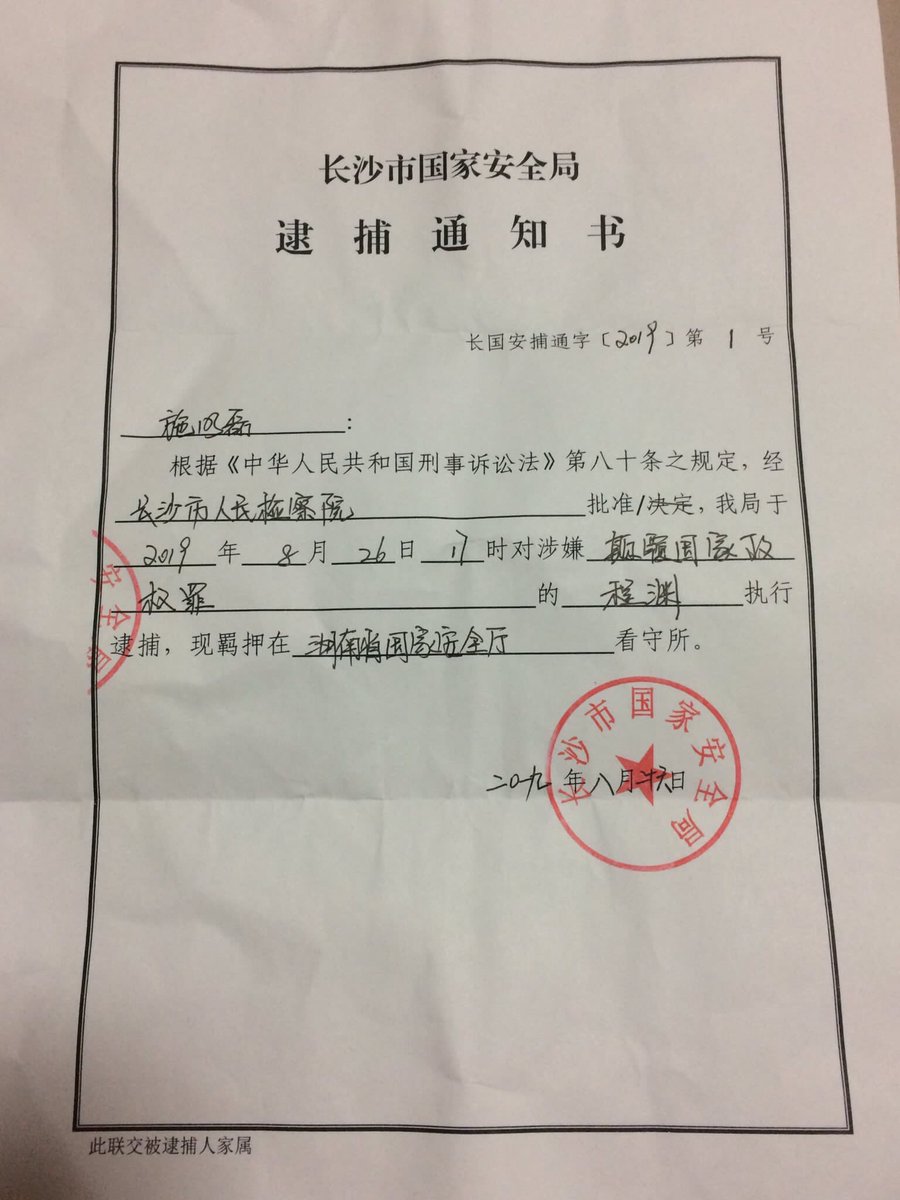 长沙市国家安全局
逮捕通知书
长国安捕通字〔2019〕第 1 号
施明磊：
根据《中华人民共和国刑事诉讼法》第八十条之规定，经
长沙市人民检察院批准/决定，我局于
2019 年 8 月 26 日 17 时对涉嫌 颠覆国家政
权罪的 程渊 执行
逮捕，现羁押在 湖南省国家安全厅 看守所。
长沙市国家安全局
二〇一九年八月二十六日
安全局
此联交被逮捕人家属